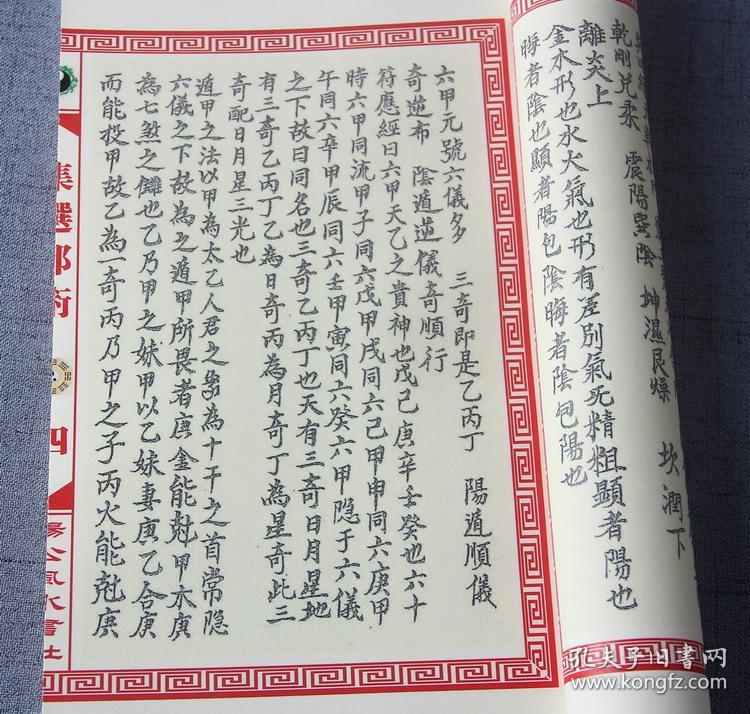 乾剛兌柔 震陽巽陰 坤濕艮燥 坎潤下
離炎上
金木形也水火氣也形有差別氣旡精粗顯者陽也
晦者陰也顯者陽包陰晦者陰包陽也
六甲元號六儀多 三奇即是乙丙丁 陽遁順儀
奇逆布 陰遁逆儀奇順行
符應經曰六甲天乙之貴神也戊己庚辛壬癸也六十
時六甲同流甲子同六戊甲戌同六己甲申同六庚甲
午同六辛甲辰同六壬甲寅同六癸六甲隐于六儀
之下故曰同名也三奇乙丙丁也天有三奇日月星地
有三奇乙丙丁乙為日奇丙為月奇丁為星奇此三
奇配日月星三光也
遁甲之法以甲為太乙人君之象為十干之首常隐
六儀之下故為之遁甲所畏者庚金能尅甲木庚
為七煞之讎也乙乃甲之妹甲以乙妹妻庚乙合庚
而能投甲故乙為一奇丙乃甲之子丙火能尅庚
集選郤術
四
楊公風水書社
孔夫子旧書网
www.kongfz.com